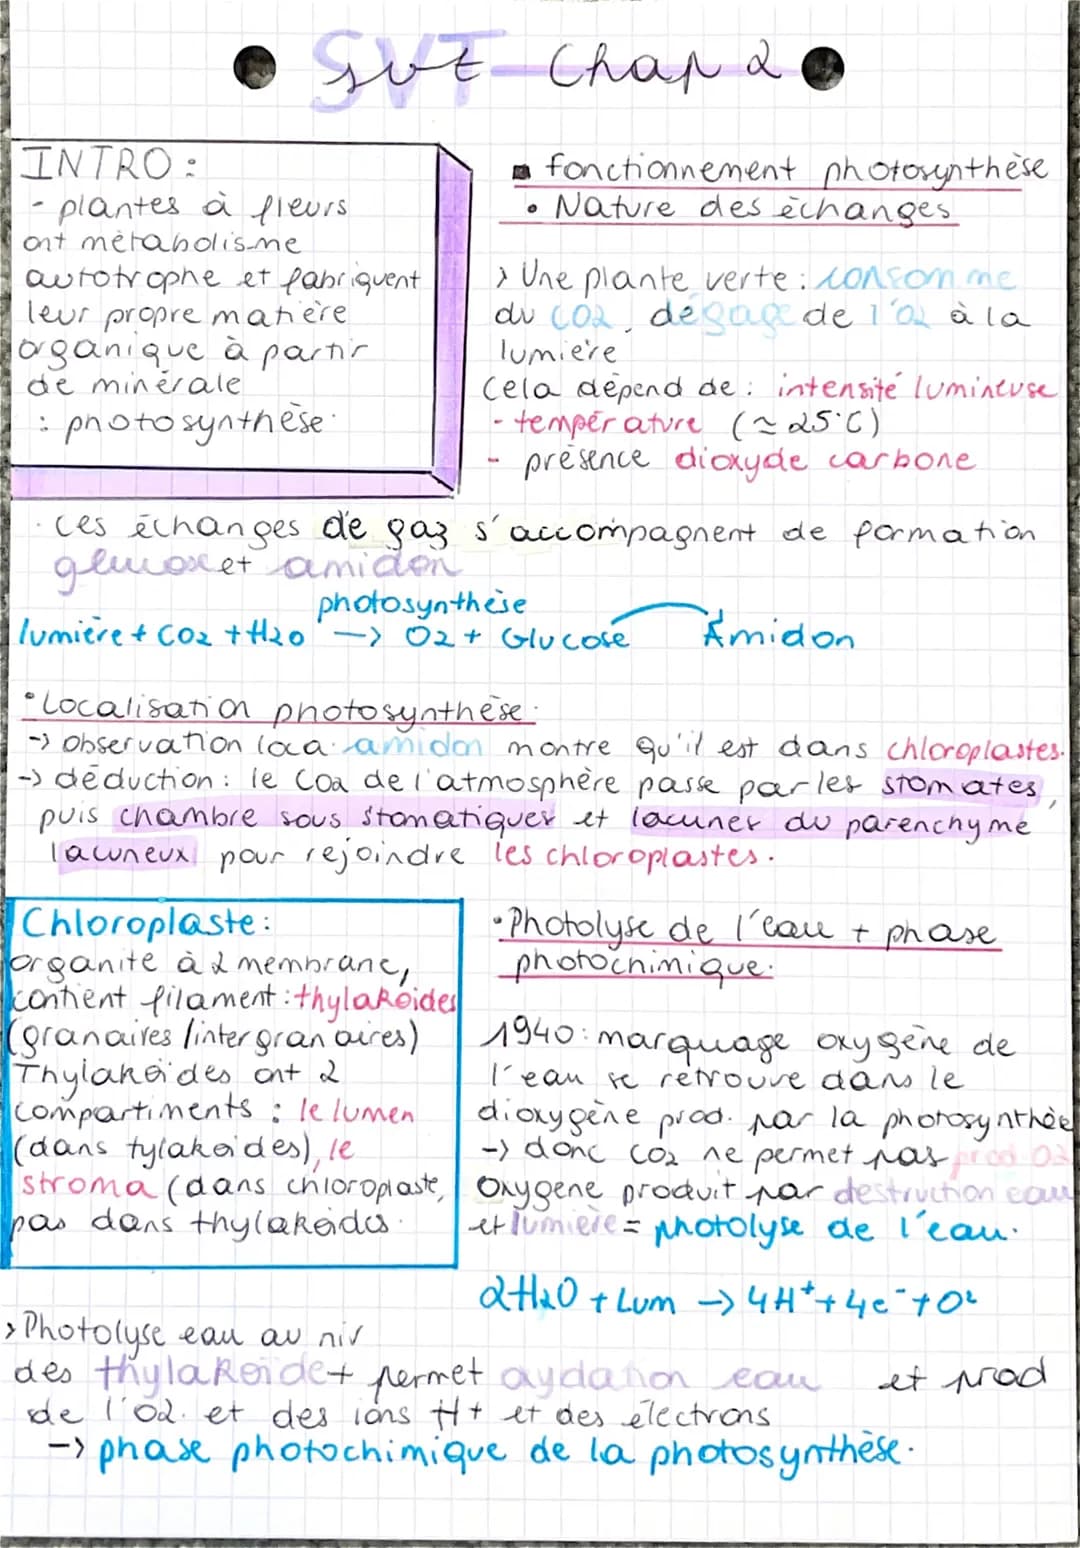 SVT Chap 2
INTRO :
- plantes à fleurs
ont métabolisme
autotrophe et fabriquent
leur propre matière
organique à partir
de minérale
: photosynthèse.
fonctionnement photosynthèse
• Nature des échanges
> Une plante verte : consomme
du CO2, dégage de l'O2 à la
lumière
Cela dépend de : intensité lumineuse
- température (≈ 25°C)
- présence dioxyde carbone
. ces échanges de gaz s'accompagnent de formation
glucose et amidon
photosynthèse
lumière + CO2 + H2O —> O2 + Glucose Amidon
• Localisation photosynthèse.
-> observation loca. amidon montre qu'il est dans chloroplastes.
-> déduction : le CO2 de l'atmosphère passe par les stomates,
puis chambre sous stomatiques et lacunes du parenchyme
lacuneux pour rejoindre les chloroplastes.
Chloroplaste :
organite à 2 membrane,
contient filament : thylakoïdes
(granaires / intergranaires)
Thylakoïdes ont 2
compartiments : le lumen
(dans tylakoides), le
stroma (dans chloroplaste,
pas dans thylakoïdes.
• Photolyse de l'eau + phase
photochimique.
1940 : marquage oxygène de
l'eau se retrouve dans le
dioxygène prod. par la photosynthèse
-> donc CO2 ne permet pas prod O2
Oxygene produit par destruction eau
et lumière = photolyse de l'eau.
2H2O + Lum -> 4H+ + 4e- + O2
> Photolyse eau au niv
des thylakoïde + permet oxydation eau et prod
de l'O2. et des ions H+ et des électrons
-> phase photochimique de la photosynthèse.